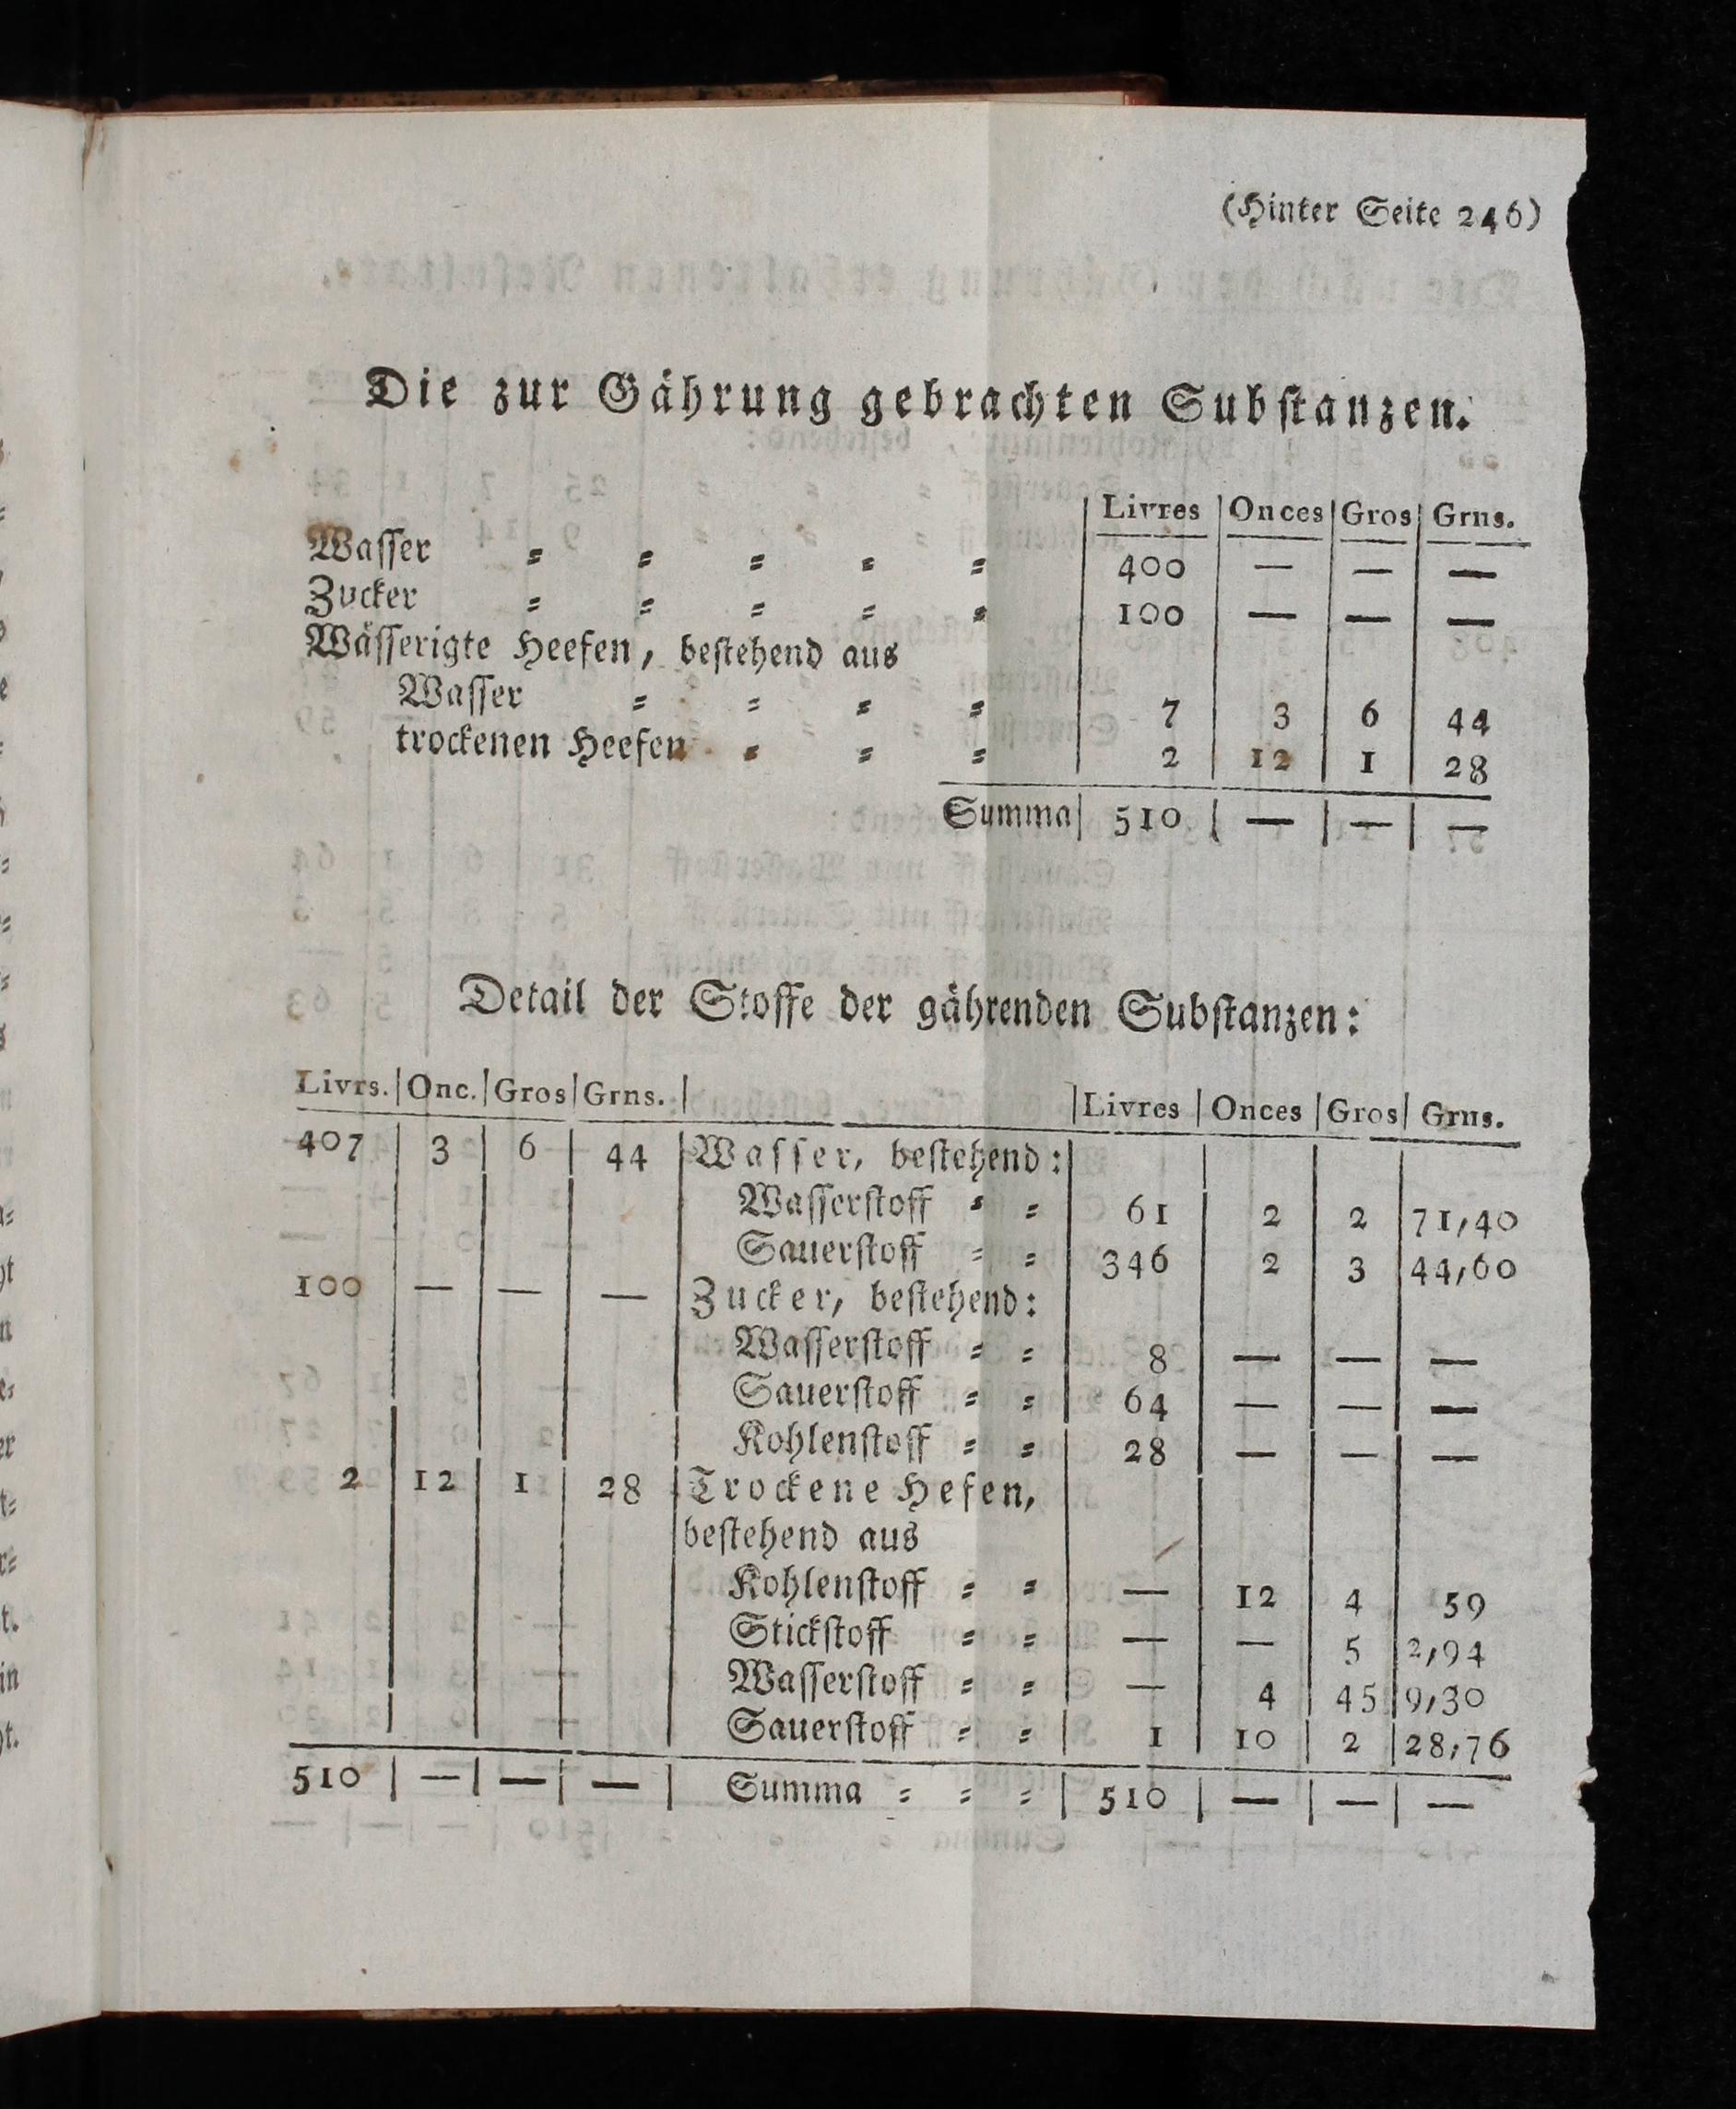 (Hinter Seite 246)
Die zur Gährung gebrachten Substanzen.
Livres | Onces | Gros | Grns.
Wasser = = = = = 400 — — —
Zucker = = = = = 100 — — —
Wässerigte Heefen, bestehend aus
Wasser = = = = 7 3 6 44
trockenen Heefen = = = 2 12 1 28
Summa 510 — — —
Detail der Stoffe der gährenden Substanzen:
Livrs. | Onc. | Gros | Grns. | | Livres | Onces | Gros | Grns.
407 | 3 | 6 | 44 | Wasser, bestehend:
Wasserstoff = = 61 2 2 71,40
Sauerstoff = = 346 2 3 44,60
100 — — — Zucker, bestehend:
Wasserstoff = = 8 — — —
Sauerstoff = = 64 — — —
Kohlenstoff = = 28 — — —
2 12 1 28 Trockene Hefen,
bestehend aus
Kohlenstoff = = — 12 4 59
Stickstoff = = — — 5 2,94
Wasserstoff = = — 4 45 9,30
Sauerstoff = = 1 10 2 28,76
510 — — — Summa = = = 510 — — —